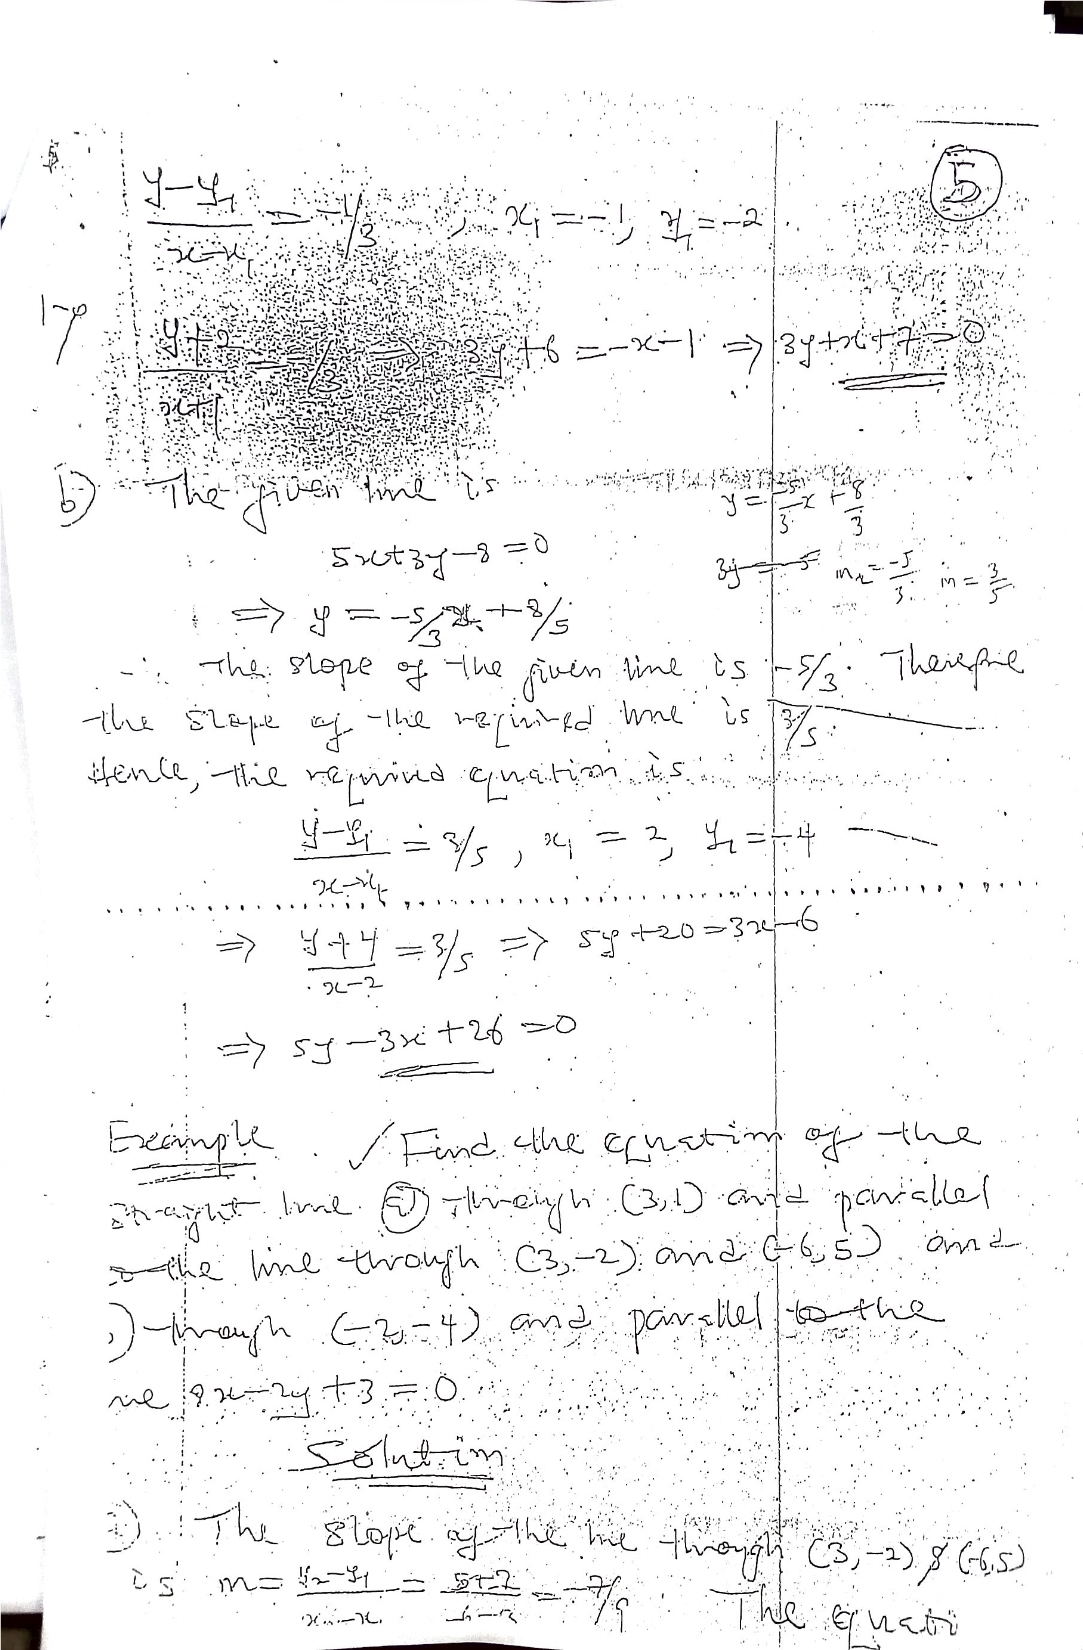 5
y-y₁/x-x₁ = -1/3 , x₁ = -1, y₁ = -2
y+2/x+1 = -1/3 => 3y+6 = -x-1 => 3y+x+7=0
b) The given line is
y = -5/3 x + 8/3
5x+3y-8=0
3y = -5 m₂ = -5/3 m = 3/5
=> y = -5/3 x + 8/5
∴ The slope of the given line is -5/3. Therefore
the slope of the required line is 3/5
Hence, the required equation is
y-y₁/x-x₁ = 3/5 , x₁ = 2, y₁ = -4
=> y+4/x-2 = 3/5 => 5y+20=3x-6
=> 5y-3x+26=0
Example . ✓ Find the equation of the
straight line a) through (3,1) and parallel
to the line through (3,-2) and (-6,5) and
) through (-2,-4) and parallel to the
ne 8x-2y+3=0
Solution
) The slope of the line through (3,-2) & (-6,5)
is m = y₂-y₁/x₂-x₁ = 5+2/-6-3 = -7/9 The equati